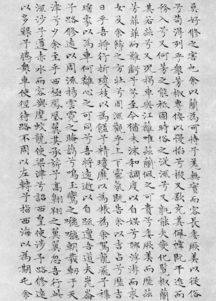 莫好修之害也余以蘭為可恃兮羌無實而容長委厥美以從俗
兮苟得列乎眾芳椒專佞以慢慆兮樧又欲充夫佩幃既干進而務
入兮又何芳之能祗固時俗之流從兮又孰能無變化覽椒蘭
其若茲兮又況揭車與江離惟茲佩之可貴兮委厥美而歷茲
芳菲菲而難虧兮芬至今猶未沬和調度以自娛兮聊浮游而求
女及余飾之方壯兮周流觀乎上下靈氛既告余以吉占兮歷吉
日乎吾將行折瓊枝以為羞兮精瓊爢以為粻為余駕飛龍兮雜
瑤象以為車何離心之可同兮吾將遠逝以自疏邅吾道夫崑崙
兮路修遠以周流揚雲霓之晻藹兮鳴玉鸞之啾啾朝發軔於天
津兮夕余至乎西極鳳皇翼其承旂兮高翱翔之翼翼忽吾行此
流沙兮遵赤水而容與麾蛟龍使梁津兮詔西皇使涉予路修遠
以多艱兮騰眾車使徑待路不周以左轉兮指西海以為期屯余